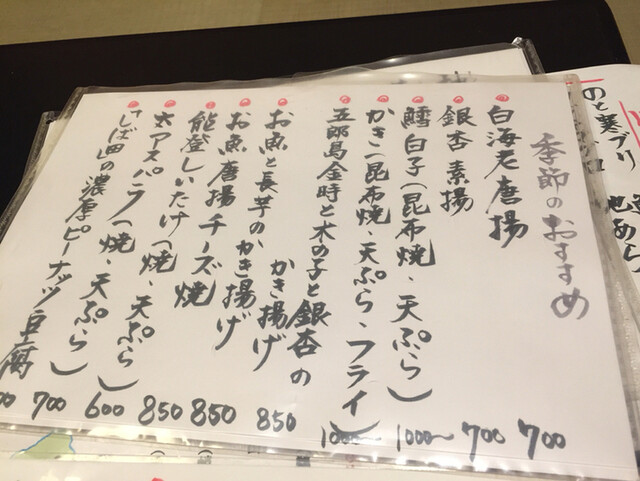 季節のおすすめ
白海老唐揚 700
銀杏 素揚 700
鱈白子(昆布焼、天ぷら) 1000~
かき(昆布焼・天ぷら・フライ) 1000~
五郎島金時と木の子と銀杏の
かき揚げ 850
お魚と長芋のかき揚げ 850
お魚唐揚チーズ焼 850
能登しいたけ(焼、天ぷら) 600
太アスパラ(焼、天ぷら) 700
しば田の濃厚ピーナッツ豆腐
のと寒ブリ
地あら